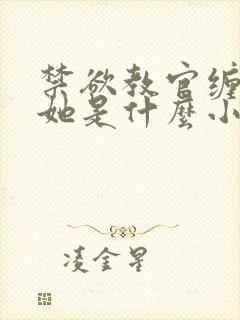 禁欲教官缠
她是什麼小
凌金星